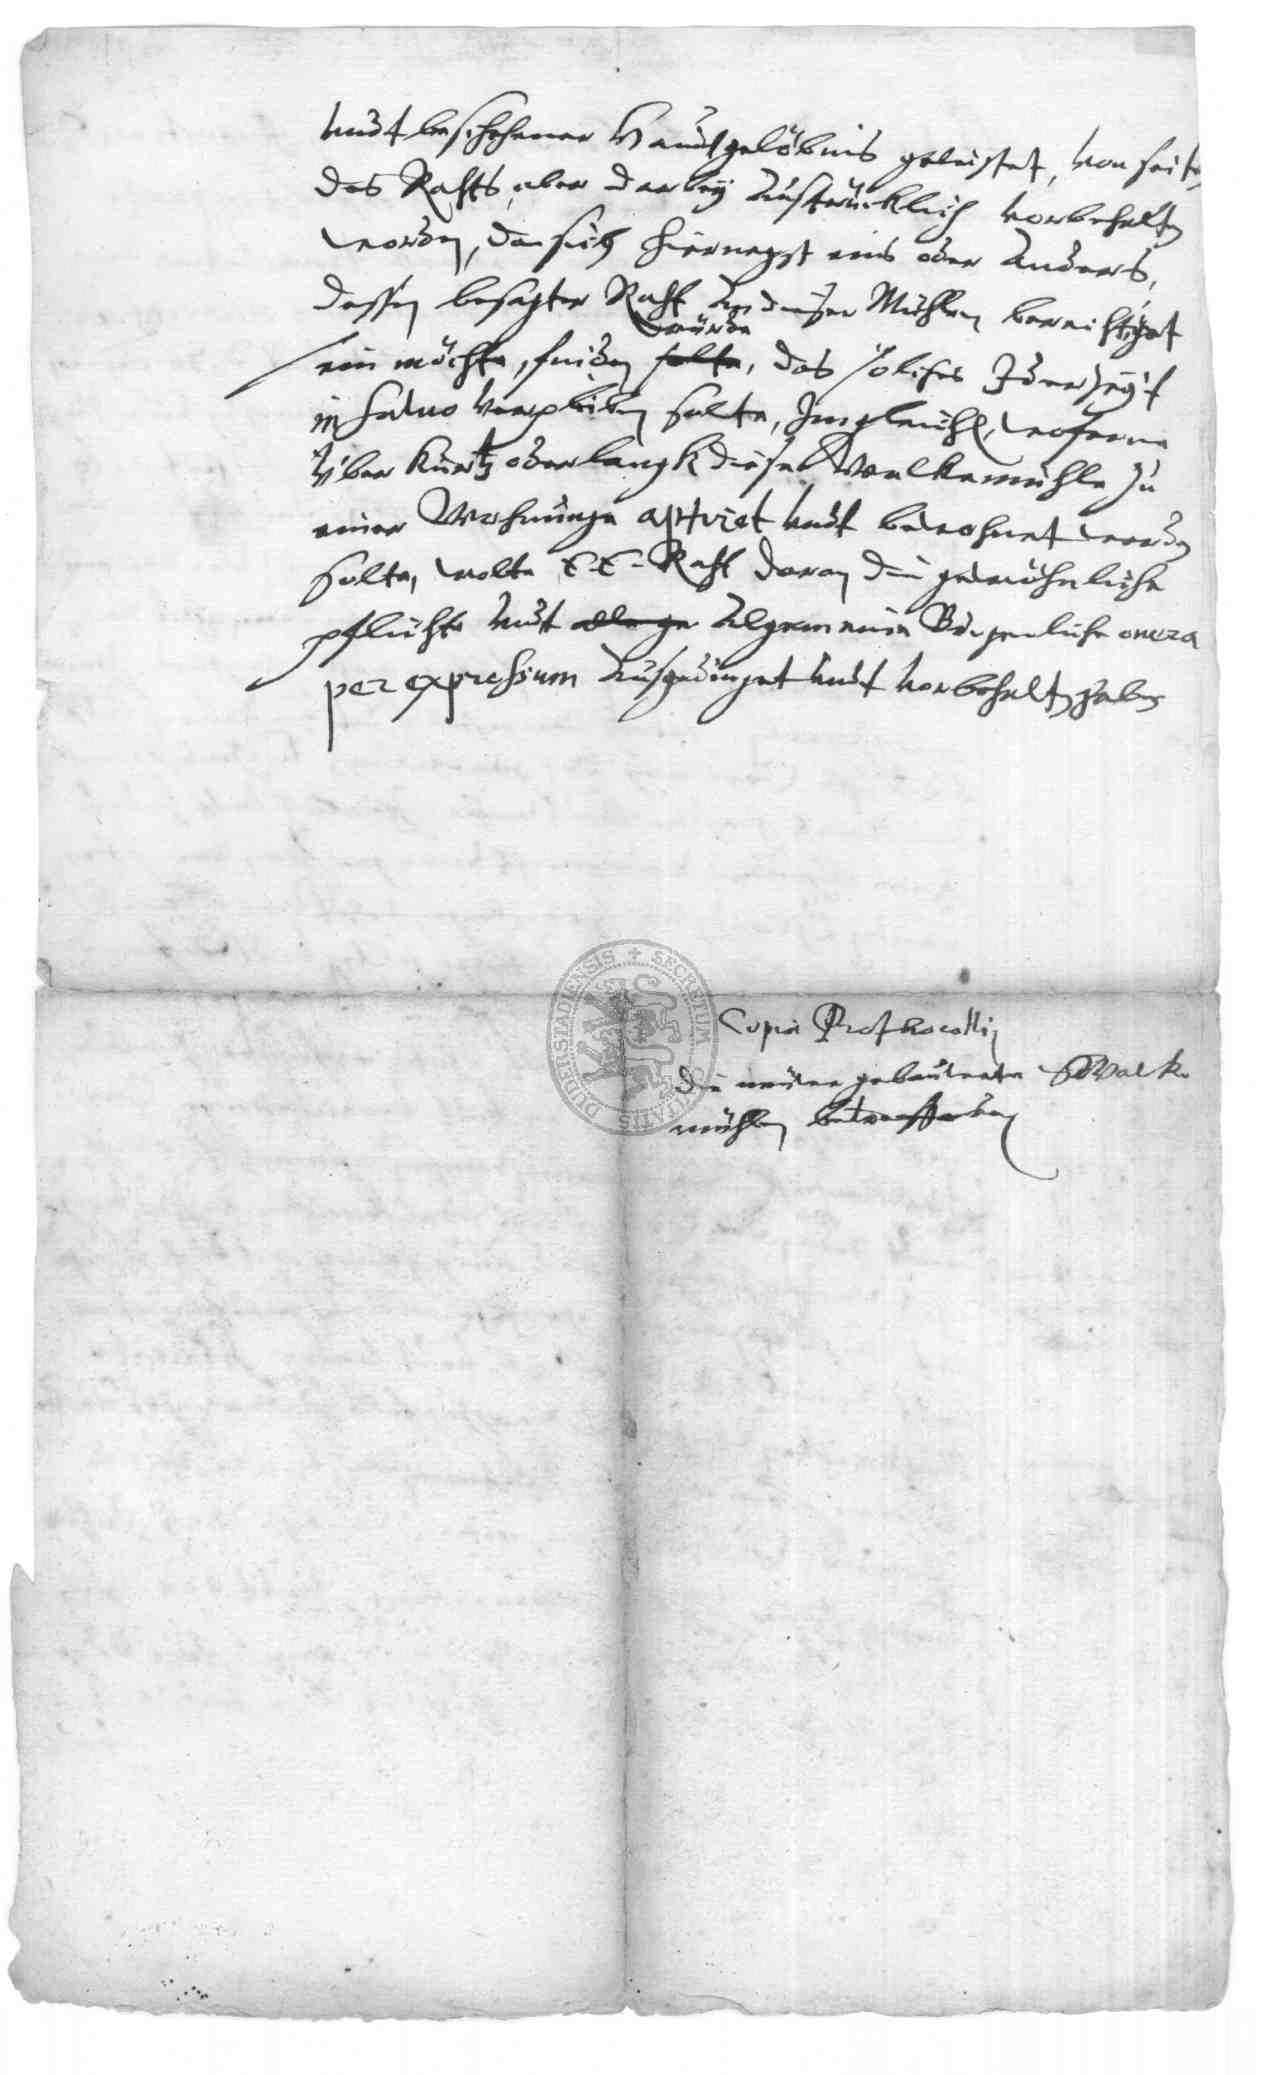 undt beschehener Handtgelöbnis geleistet, von seiten
des Rahts, aber darbey außtrücklich vorbehalten
worden, da sich hiernegst eins oder anders,
dessen besagter Raht an dieser Mühlen berechtiget
sein möchte, finden solte würde, das solches Jederzeyt
in salvo verpleiben solte, Imgleichen, woferne
über kurtz oder langk diese Walkemühle zu
einer Wohnunge aptiret undt bewohnet werden
solte, wolte E. E. Raht daran die gewöhnliche
pflichte undt alle ge algemeine Bürgerliche onera
per expressum außgedinget undt vorbehalten haben
Copia Prothocolli
die newe gebauwete Walk-
mühlen betreffenden
SECRETUM CIVITATIS DUDERSTADIENSIS